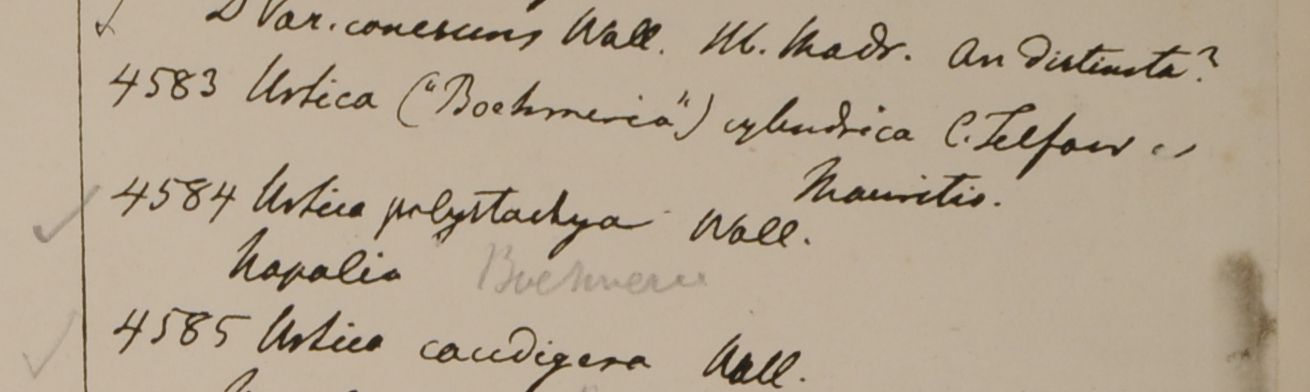 D Var. canescens Wall. M. Madr. An distincta?
4583 Urtica ("Boehmeria") cylindrica C. Telfair
Mauritio.
4584 Urtica polystachya Wall.
Napalia Boehmeria
4585 Urtica caudigera Wall.